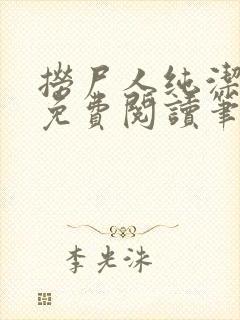 撈尸人純潔
免費閱讀筆
李光洙